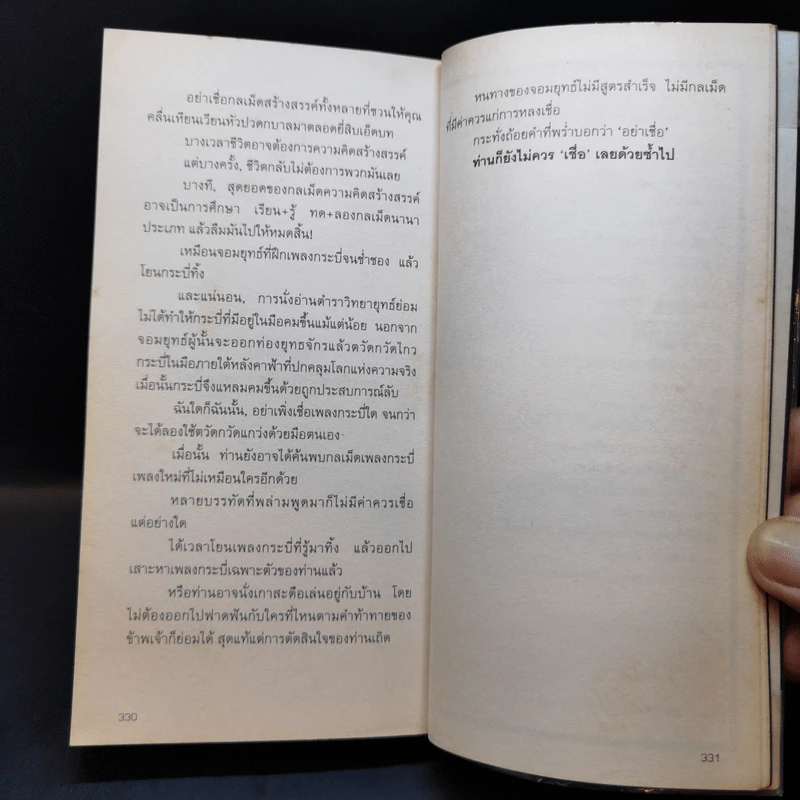 อย่าเชื่อกลเม็ดสร้างสรรค์ทั้งหลายที่ชวนให้คุณ
คลื่นเหียนเวียนหัวปวดกบาลมาตลอดยี่สิบเอ็ดบท
บางเวลาชีวิตอาจต้องการความคิดสร้างสรรค์
แต่บางครั้ง, ชีวิตกลับไม่ต้องการพวกมันเลย
บางที, สุดยอดของกลเม็ดความคิดสร้างสรรค์
อาจเป็นการศึกษา เรียน+รู้ ทด+ลองกลเม็ดนานา
ประเภท แล้วลืมมันไปให้หมดสิ้น!
เหมือนจอมยุทธ์ที่ฝึกเพลงกระบี่จนช่ำชอง แล้ว
โยนกระบี่ทิ้ง
และแน่นอน, การนั่งอ่านตำราวิทยายุทธ์ย่อม
ไม่ได้ทำให้กระบี่ที่มีอยู่ในมือคมขึ้นแม้แต่น้อย นอกจาก
จอมยุทธ์ผู้นั้นจะออกท่องยุทธจักรแล้วตวัดกวัดไกว
กระบี่ในมือภายใต้หลังคาฟ้าที่ปกคลุมโลกแห่งความจริง
เมื่อนั้นกระบี่จึงแหลมคมขึ้นด้วยถูกประสบการณ์ลับ
ฉันใดก็ฉันนั้น, อย่าเพิ่งเชื่อเพลงกระบี่ใด จนกว่า
จะได้ลองใช้ตวัดกวัดแกว่งด้วยมือตนเอง
เมื่อนั้น ท่านยังอาจได้ค้นพบกลเม็ดเพลงกระบี่
เพลงใหม่ที่ไม่เหมือนใครอีกด้วย
หลายบรรทัดที่พล่ามพูดมาก็ไม่มีค่าควรเชื่อ
แต่อย่างใด
ได้เวลาโยนเพลงกระบี่ที่รู้มาทิ้ง แล้วออกไป
เสาะหาเพลงกระบี่เฉพาะตัวของท่านแล้ว
หรือท่านอาจนั่งเกาสะดือเล่นอยู่กับบ้าน โดย
ไม่ต้องออกไปฟาดฟันกับใครที่ไหนตามคำท้าทายของ
ข้าพเจ้าก็ย่อมได้ สุดแท้แต่การตัดสินใจของท่านเถิด
330
หนทางของจอมยุทธ์ไม่มีสูตรสำเร็จ ไม่มีกลเม็ด
ที่มีค่าควรแก่การหลงเชื่อ
กระทั่งถ้อยคำที่พร่ำบอกว่า ‘อย่าเชื่อ’
ท่านก็ยังไม่ควร ‘เชื่อ’ เลยด้วยซ้ำไป
331